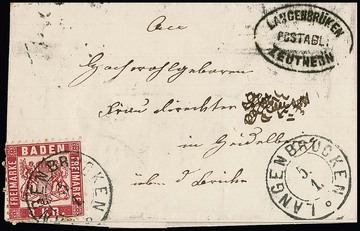 An
LANGENBRÜKEN
POSTABL.
ZEUTHERN
Hochwohlgeboren
Frau Direktor
in Heidelb
über d Brücke
BADEN
FREIMARKE
FREIMARKE
LANGENBRÜCKEN
5.
1.
LANGENBRÜCKEN